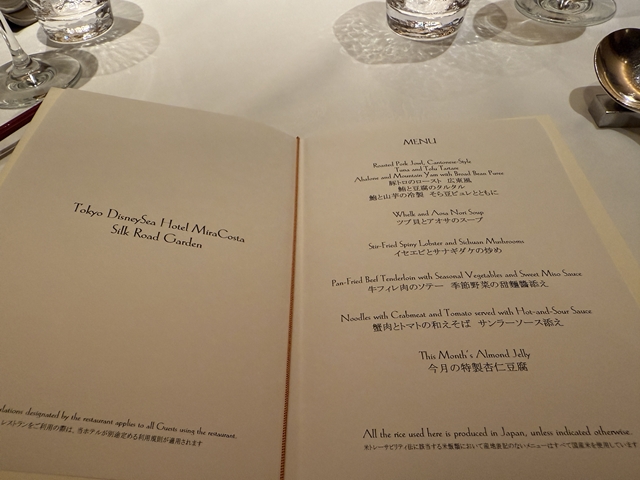 Tokyo DisneySea Hotel MiraCosta
Silk Road Garden
designated by the restaurant applies to all Guests using the restaurant.
レストランをご利用の際は、当ホテルが別途定める利用規則が適用されます
MENU
Roasted Pork Jowl, Cantonese-Style
Tuna and Tofu Tartare
Abalone and Mountain Yam with Broad Bean Puree
豚トロのロースト 広東風
鮪と豆腐のタルタル
鮑と山芋の冷製 そら豆ピュレとともに
Whelk and Aosa Nori Soup
ツブ貝とアオサのスープ
Stir-Fried Spiny Lobster and Sichuan Mushrooms
イセエビとサナギダケの炒め
Pan-Fried Beef Tenderloin with Seasonal Vegetables and Sweet Miso Sauce
牛フィレ肉のソテー 季節野菜の甜麺醤添え
Noodles with Crabmeat and Tomato served with Hot-and-Sour Sauce
蟹肉とトマトの和えそば サンラーソース添え
This Month's Almond Jelly
今月の特製杏仁豆腐
All the rice used here is produced in Japan, unless indicated otherwise.
米トレーサビリティ法に該当する米飯類において産地表記のないメニューはすべて国産米を使用しています